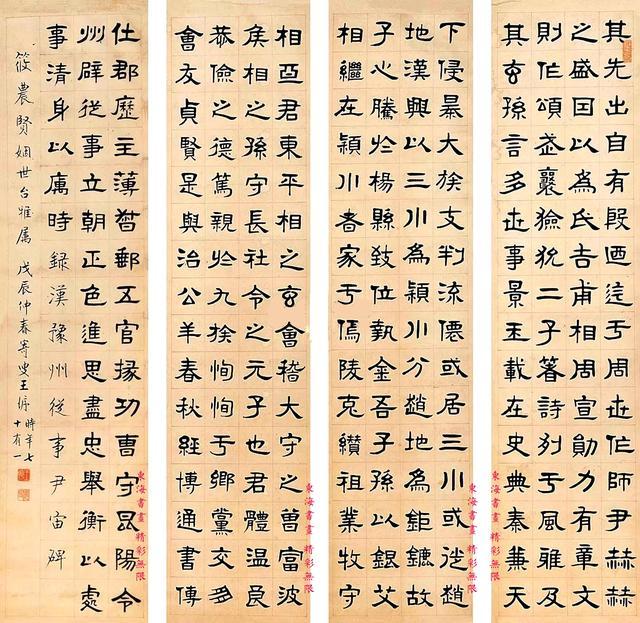 其先出自有殷迺迄于周世作師尹赫赫
之盛因以為氏吉甫相周宣勛力有章文
則作頌武襄獫狁二子著詩列于風雅及
其玄孫言多世事景王載在史典秦兼天
下侵暴大族支判流僊或居三川或徙趙
地漢興以三川為潁川分趙地為鉅鏕故
子心騰於楊縣致位執金吾子孫以銀艾
相繼在潁川者家于傿陵克纘祖業牧守
相亞君東平相之玄會稽大守之曾富波
侯相之孫守長社令之元子也君體溫良
恭儉之德篤親於九族恂恂于鄉黨交多
會友貞賢是與治公羊春秋經博通書傳
仕郡歷主薄督郵五官掾功曹守昆陽令
州辟從事立朝正色進思盡忠舉衡以處
事清身以厲時錄漢豫州從事尹宙碑
筱農賢姻世台雅屬 戊辰仲春寄叟王 時年七十有一
東海書畫 精彩無限
東海書畫 精彩無限
東海書畫 精彩無限